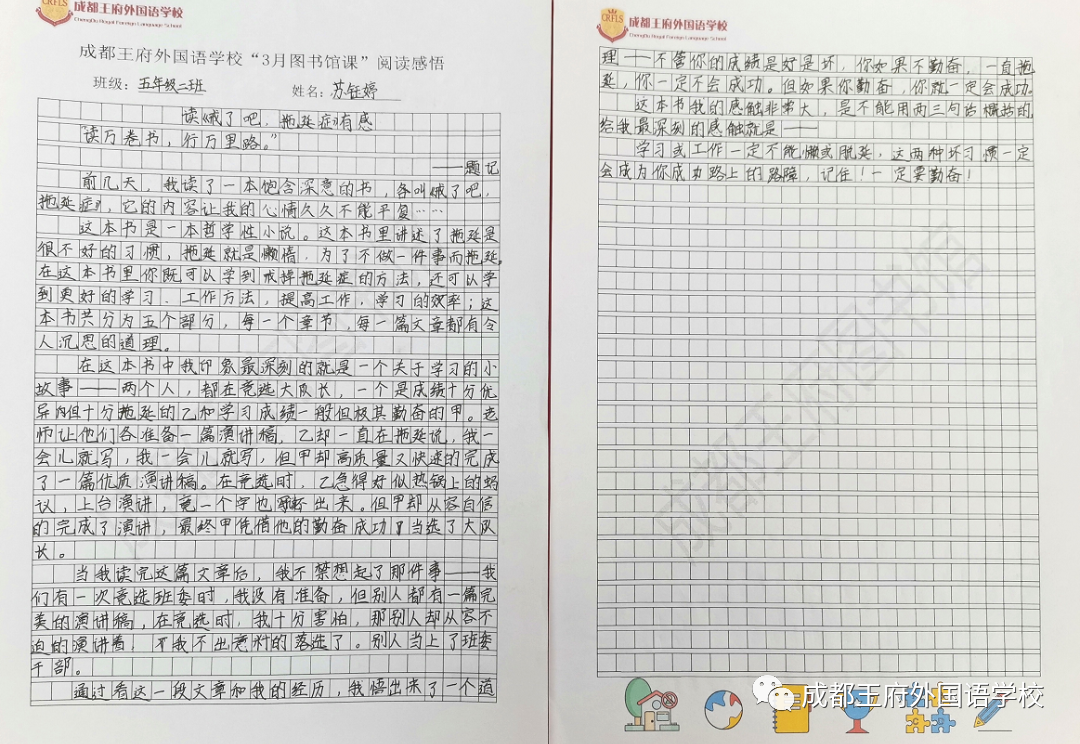 CRFLS 成都王府外国语学校
ChengDu Royal Foreign Language School
成都王府外国语学校“3月图书馆课”阅读感悟
班级：五年级二班 姓名：苏钰婷
读《戒了吧，拖延症》有感
读万卷书，行万里路。”
——题记
前几天，我读了一本饱含深意的书，名叫《戒了吧，
拖延症》，它的内容让我的心情久久不能平复……
这本书是一本哲学性小说。这本书里讲述了拖延是
很不好的习惯，拖延就是懒惰，为了不做一件事而拖延，
在这本书里你既可以学到戒掉拖延症的方法，还可以学
到更好的学习、工作方法，提高工作，学习的效率；这
本书共分为五个部分，每一个章节，每一篇文章都有令
人沉思的道理。
在这本书中我印象最深刻的就是一个关于学习的小
故事——两个人，都在竞选大队长，一个是成绩十分优
异但十分拖延的乙和学习成绩一般但极其勤奋的甲。老
师让他们各准备一篇演讲稿，乙却一直在拖延说，我一
会儿就写，我一会儿就写，但甲却高质量又快速的完成
了一篇优质演讲稿。在竞选时，乙急得好似热锅上的蚂
议，上台演讲，竟一个字也说不出来。但甲却从容自信
的完成了演讲，最终甲凭借他的勤奋成功当选了大队
长。
当我读完这篇文章后，我不禁想起了那件事——我
们有一次竞选班委时，我没有准备，但别人都有一篇完
美的演讲稿，在竞选时，我十分害怕，那别人却从容不
迫的演讲着，我不出意料的落选了。别人当上了班委
干部。
通过看这一段文章和我的经历，我悟出来了一个道
CRFLS 成都王府外国语学校
ChengDu Royal Foreign Language School
理——不管你的成绩是好是坏，你如果不勤奋，一直拖
延，你一定不会成功。但如果你勤奋，你就一定会成功。
这本书我的感触非常大，是不能用两三句话概括的，
给我最深刻的感触就是——
学习或工作一定不能懒或脱延，这两种坏习惯一定
会成为你成功路上的路障，记住！一定要勤奋！
成都王府图书馆
成都王府外国语学校